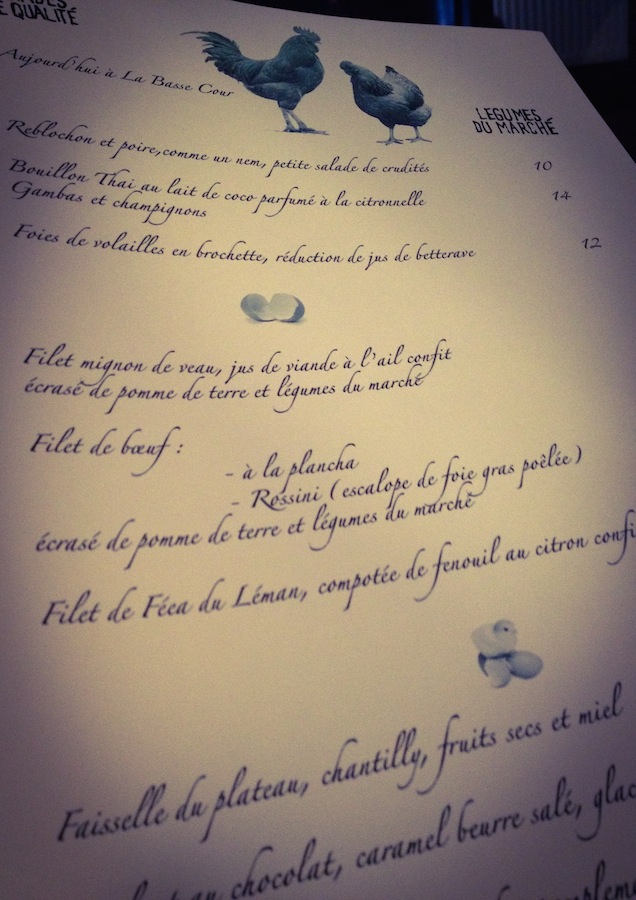 E QUALITÉ
Aujourd'hui à La Basse Cour
LEGUMES
DU MARCHÉ
Reblochon et poire,comme un nem, petite salade de crudités 10
Bouillon Thai au lait de coco parfumé à la citronnelle 14
Gambas et champignons
Foies de volailles en brochette, réduction de jus de betterave 12
Filet mignon de veau, jus de viande à l'ail confit
écrasé de pomme de terre et légumes du marché
Filet de bœuf :
- à la plancha
- Rossini ( escalope de foie gras poêlée )
écrasé de pomme de terre et légumes du marché
Filet de Féea du Léman, compotée de fenouil au citron confi
Faisselle du plateau, chantilly, fruits secs et miel
au chocolat, caramel beurre salé, glac